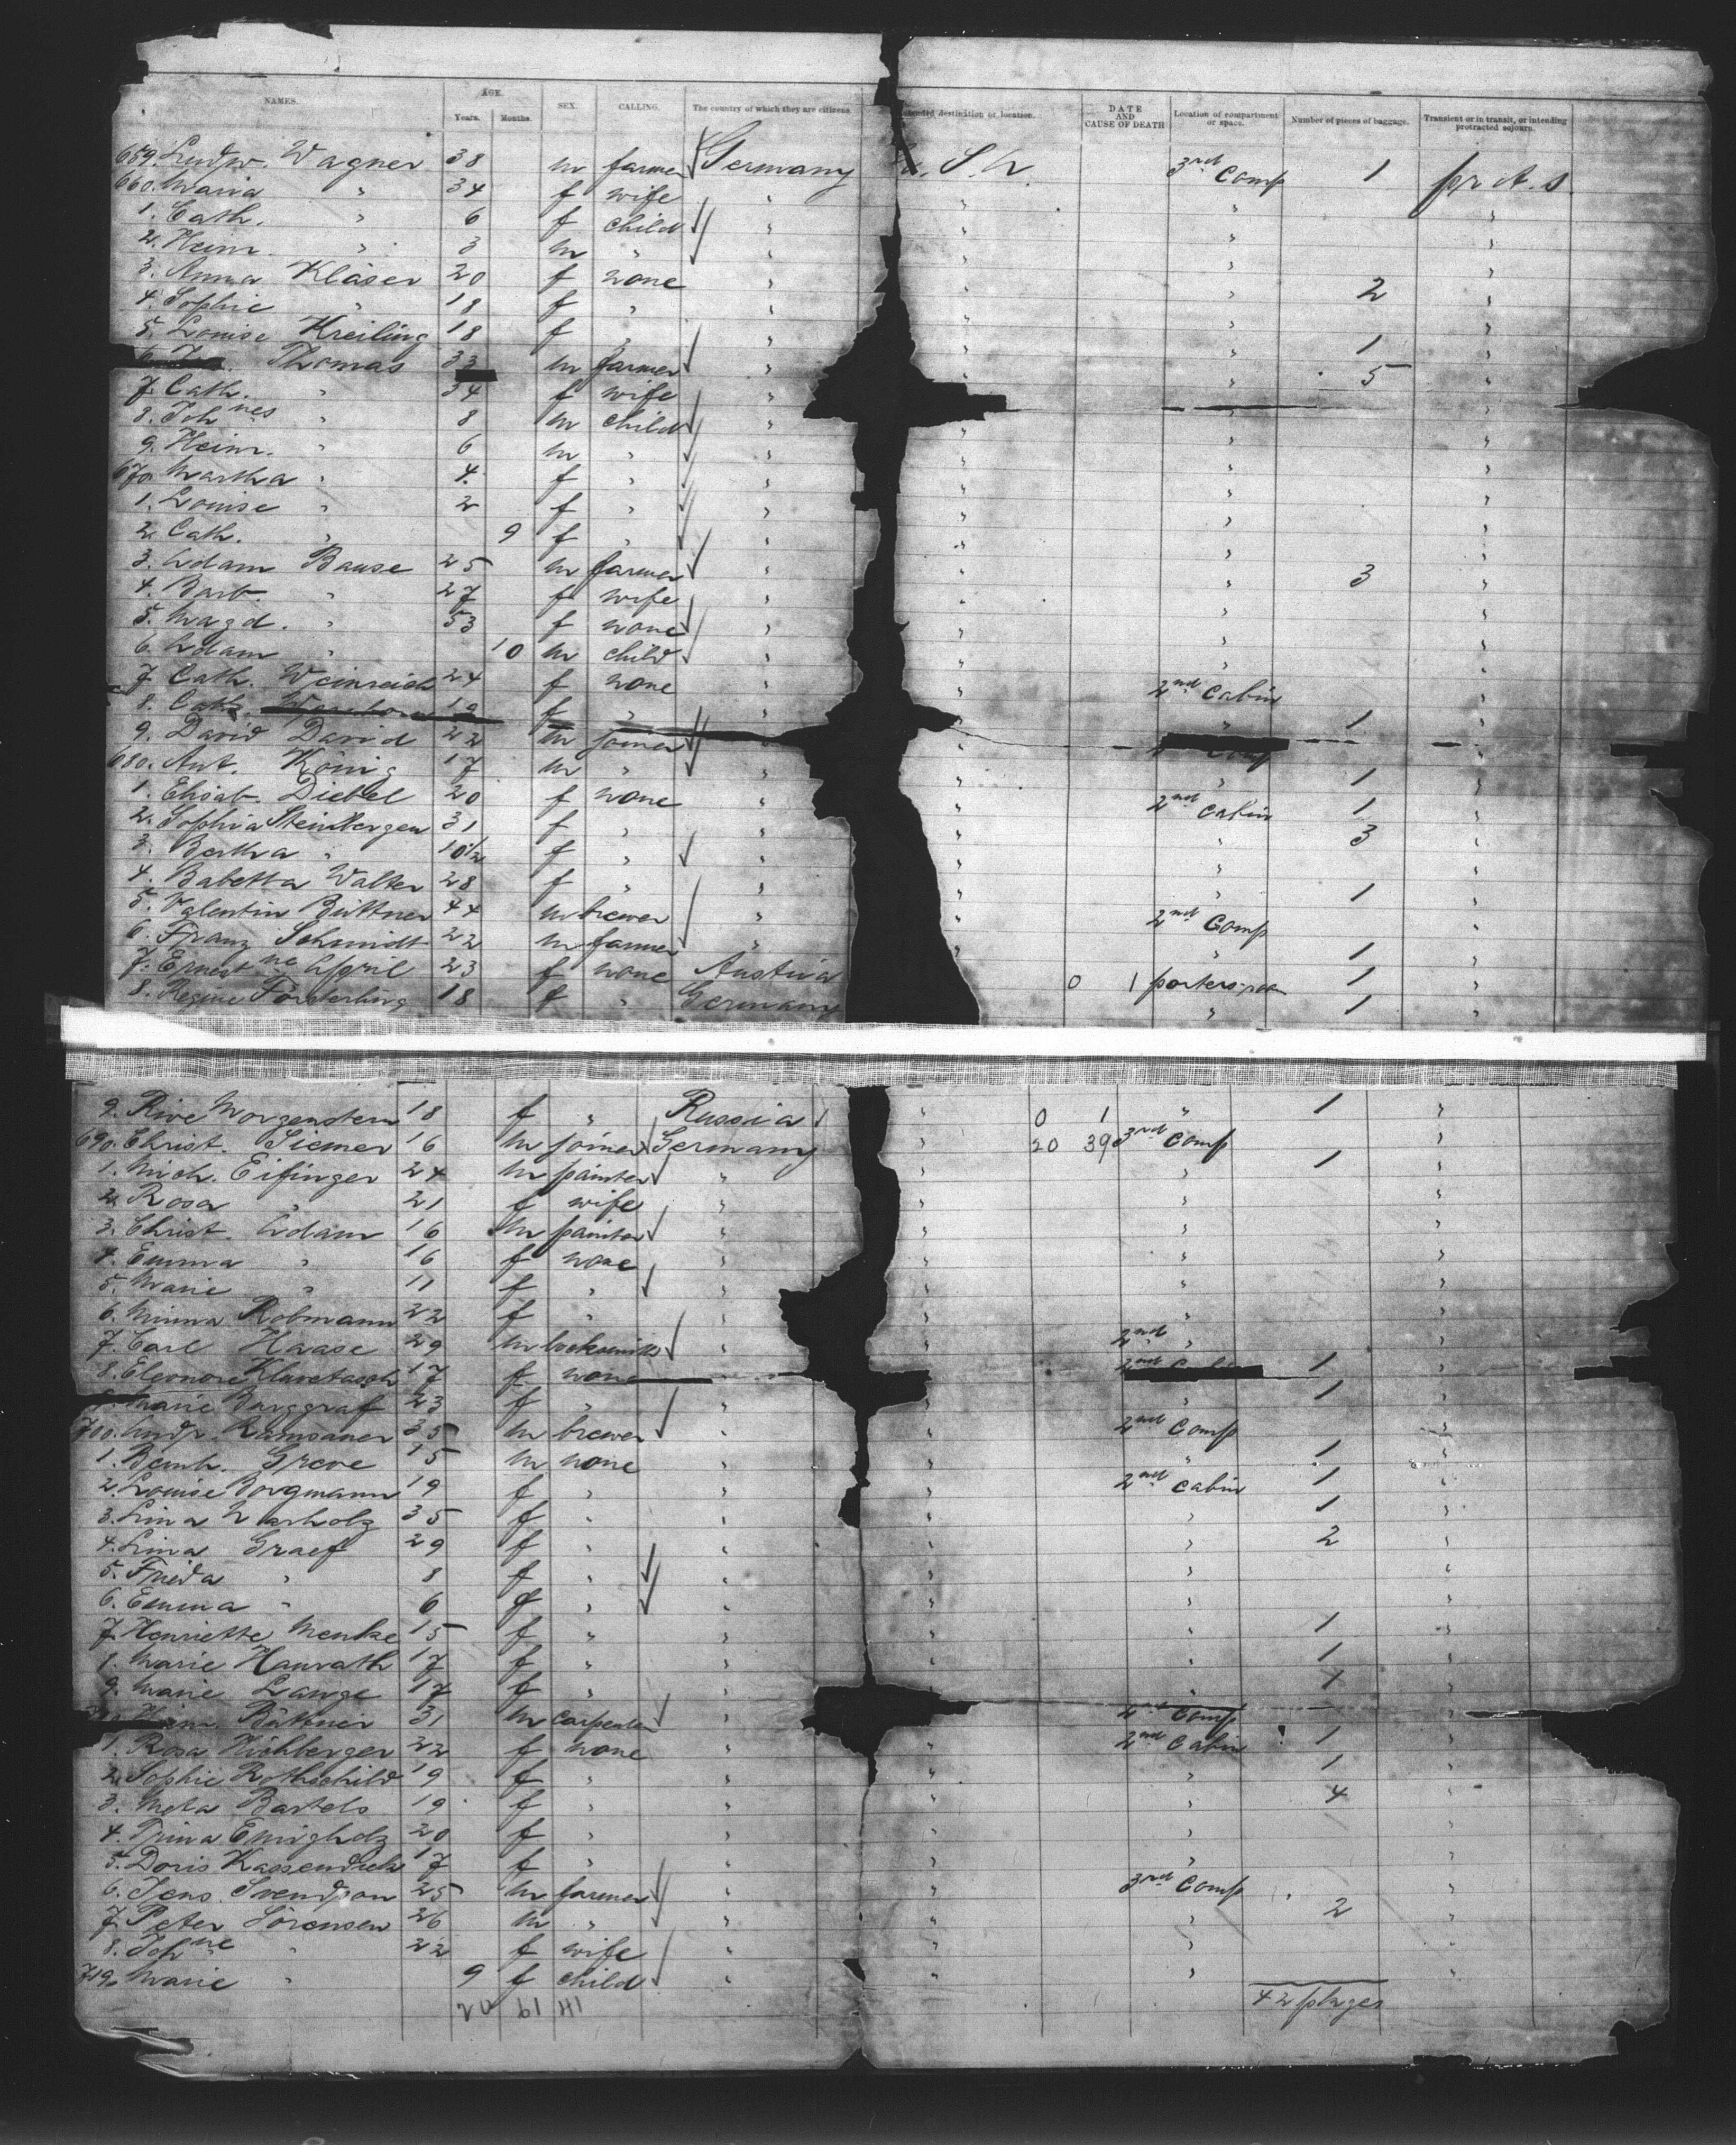 NAMES. AGE. Years. Months. SEX. CALLING. The country of which they are citizens. Intended destination or location. DATE AND CAUSE OF DEATH Location of compartment or space. Number of pieces of baggage. Transient or in transit, or intending protracted sojourn.
659. Ludw. Wagner 38 m farmer Germany U. S. A. 3rd Comp 1 pr. A. s.
660. Maria " 34 f wife " " " "
1. Cath. " 6 f child " " " "
2. Heinr. " 3 m " " " " "
3. Anna Kläser 20 f none " " " 2 "
4. Sophie " 18 f " " " " "
5. Louise Kreiling 18 f " " " " 1 "
6. Thomas 33 m farmer " " 5 "
7. Cath. " 34 f wife "
8. Johnes " 8 m child " " " "
9. Heinr. " 6 m " " " " "
670. Martha " 4 f " " " " "
1. Louise " 2 f " " " " "
2. Cath. " 9 f " " " " "
3. Adam Bause 25 m farmer " " " 3 "
4. Barb. " 27 f wife " " " "
5. Magd. " 53 f none " " " "
6. Adam " 10 m child " " " "
7. Cath. Weinreich 24 f none " " 2nd Cabin "
8. Cath. 19 f " " " 1 "
9. David David 22 m joiner " " Comp "
680. Ant. König 17 m " " " " 1 "
1. Elisab. Diebel 20 f none " " 2nd Cabin 1 "
2. Sophia Steinbergen 31 f " " " " 3 "
3. Bertha " 10½ f " " " " "
4. Babetta Walter 28 f " " " " 1 "
5. Valentin Büttner 44 m brewer " " 2nd Comp "
6. Franz Schmidt 22 m farmer " " " 1 "
7. Ernestne April 23 f none Austria 0 1 porters room 1 "
8. Regine Försterling 18 f " Germany " 1 "
9. Rive Morgenstern 18 f " Russia " 0 1 " 1 "
690. Christ. Siemer 16 m joiner Germany " 20 39 3rd Comp "
1. Mich. Eifinger 24 m painter " " " 1 "
2. Rosa " 21 f wife " " " "
3. Christ. Adam 16 m painter " " " "
4. Emma " 16 f none " " " "
5. Marie " 11 f " " " " "
6. Minna Robmann 22 f " " " " "
7. Carl Haase 29 m locksmith " " 2nd " "
8. Eleonore 17 f none 2nd 1 "
9. Marie Burggraf 23 f " " " " 1 "
700. Andr. Ramsauer 35 m brewer " " 2nd Comp "
1. Bernh. Greve 15 m none " " " 1 "
2. Louise Borgmann 19 f " " " 2nd Cabin 1 "
3. Lina Warholz 35 f " " " " 1 "
4. Lina Graef 29 f " " " " 2 "
5. Frieda " 8 f " " " " "
6. Emma " 6 f " " " " "
7. Henriette Menke 15 f " " " " 1 "
8. Marie Hanrath 17 f " " " " 1 "
9. Marie Lange 17 f " " " " 1 "
Heinr. Büttner 31 m carpenter " Comp
1. Rosa Hichberger 22 f none " " 2nd Cabin 1 "
2. Sophie Rothschild 19 f " " " " 1 "
3. Meta Bartels 19 f " " " " 4 "
4. Trina Emigholz 20 f " " " " "
5. Doris Kassendiek 17 f " " " " "
6. Jens Svendson 25 m farmer " " 3rd Comp "
7. Peter Sörensen 26 m " " " " 2 "
8. Johne " 22 f wife " " " "
719. Marie " 9 f child " " " "
20 19 41
42 plages